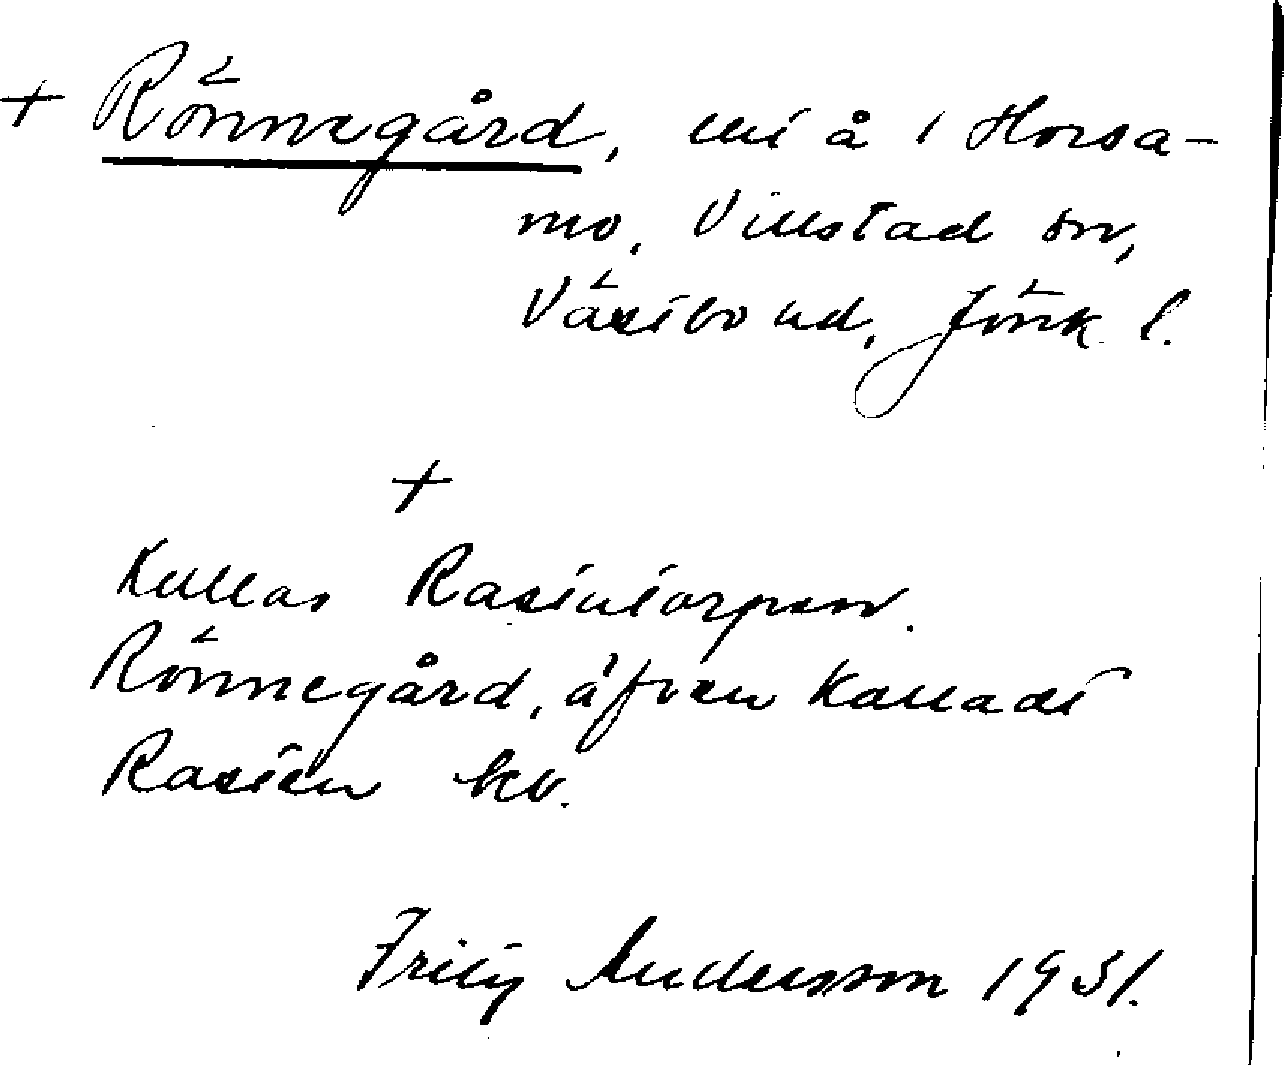 + Rönnegård, uti å 1 Horsa-
mo, Villstad sn,
Västbo hd, Jönk. l.
+
Kullas Rastentorpen.
Rönnegård, äfven kalladt
Rasten kv.
Fritz Andersson 1931.